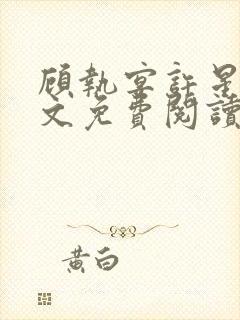 顧執宴許星
文免費閱讀
黃白